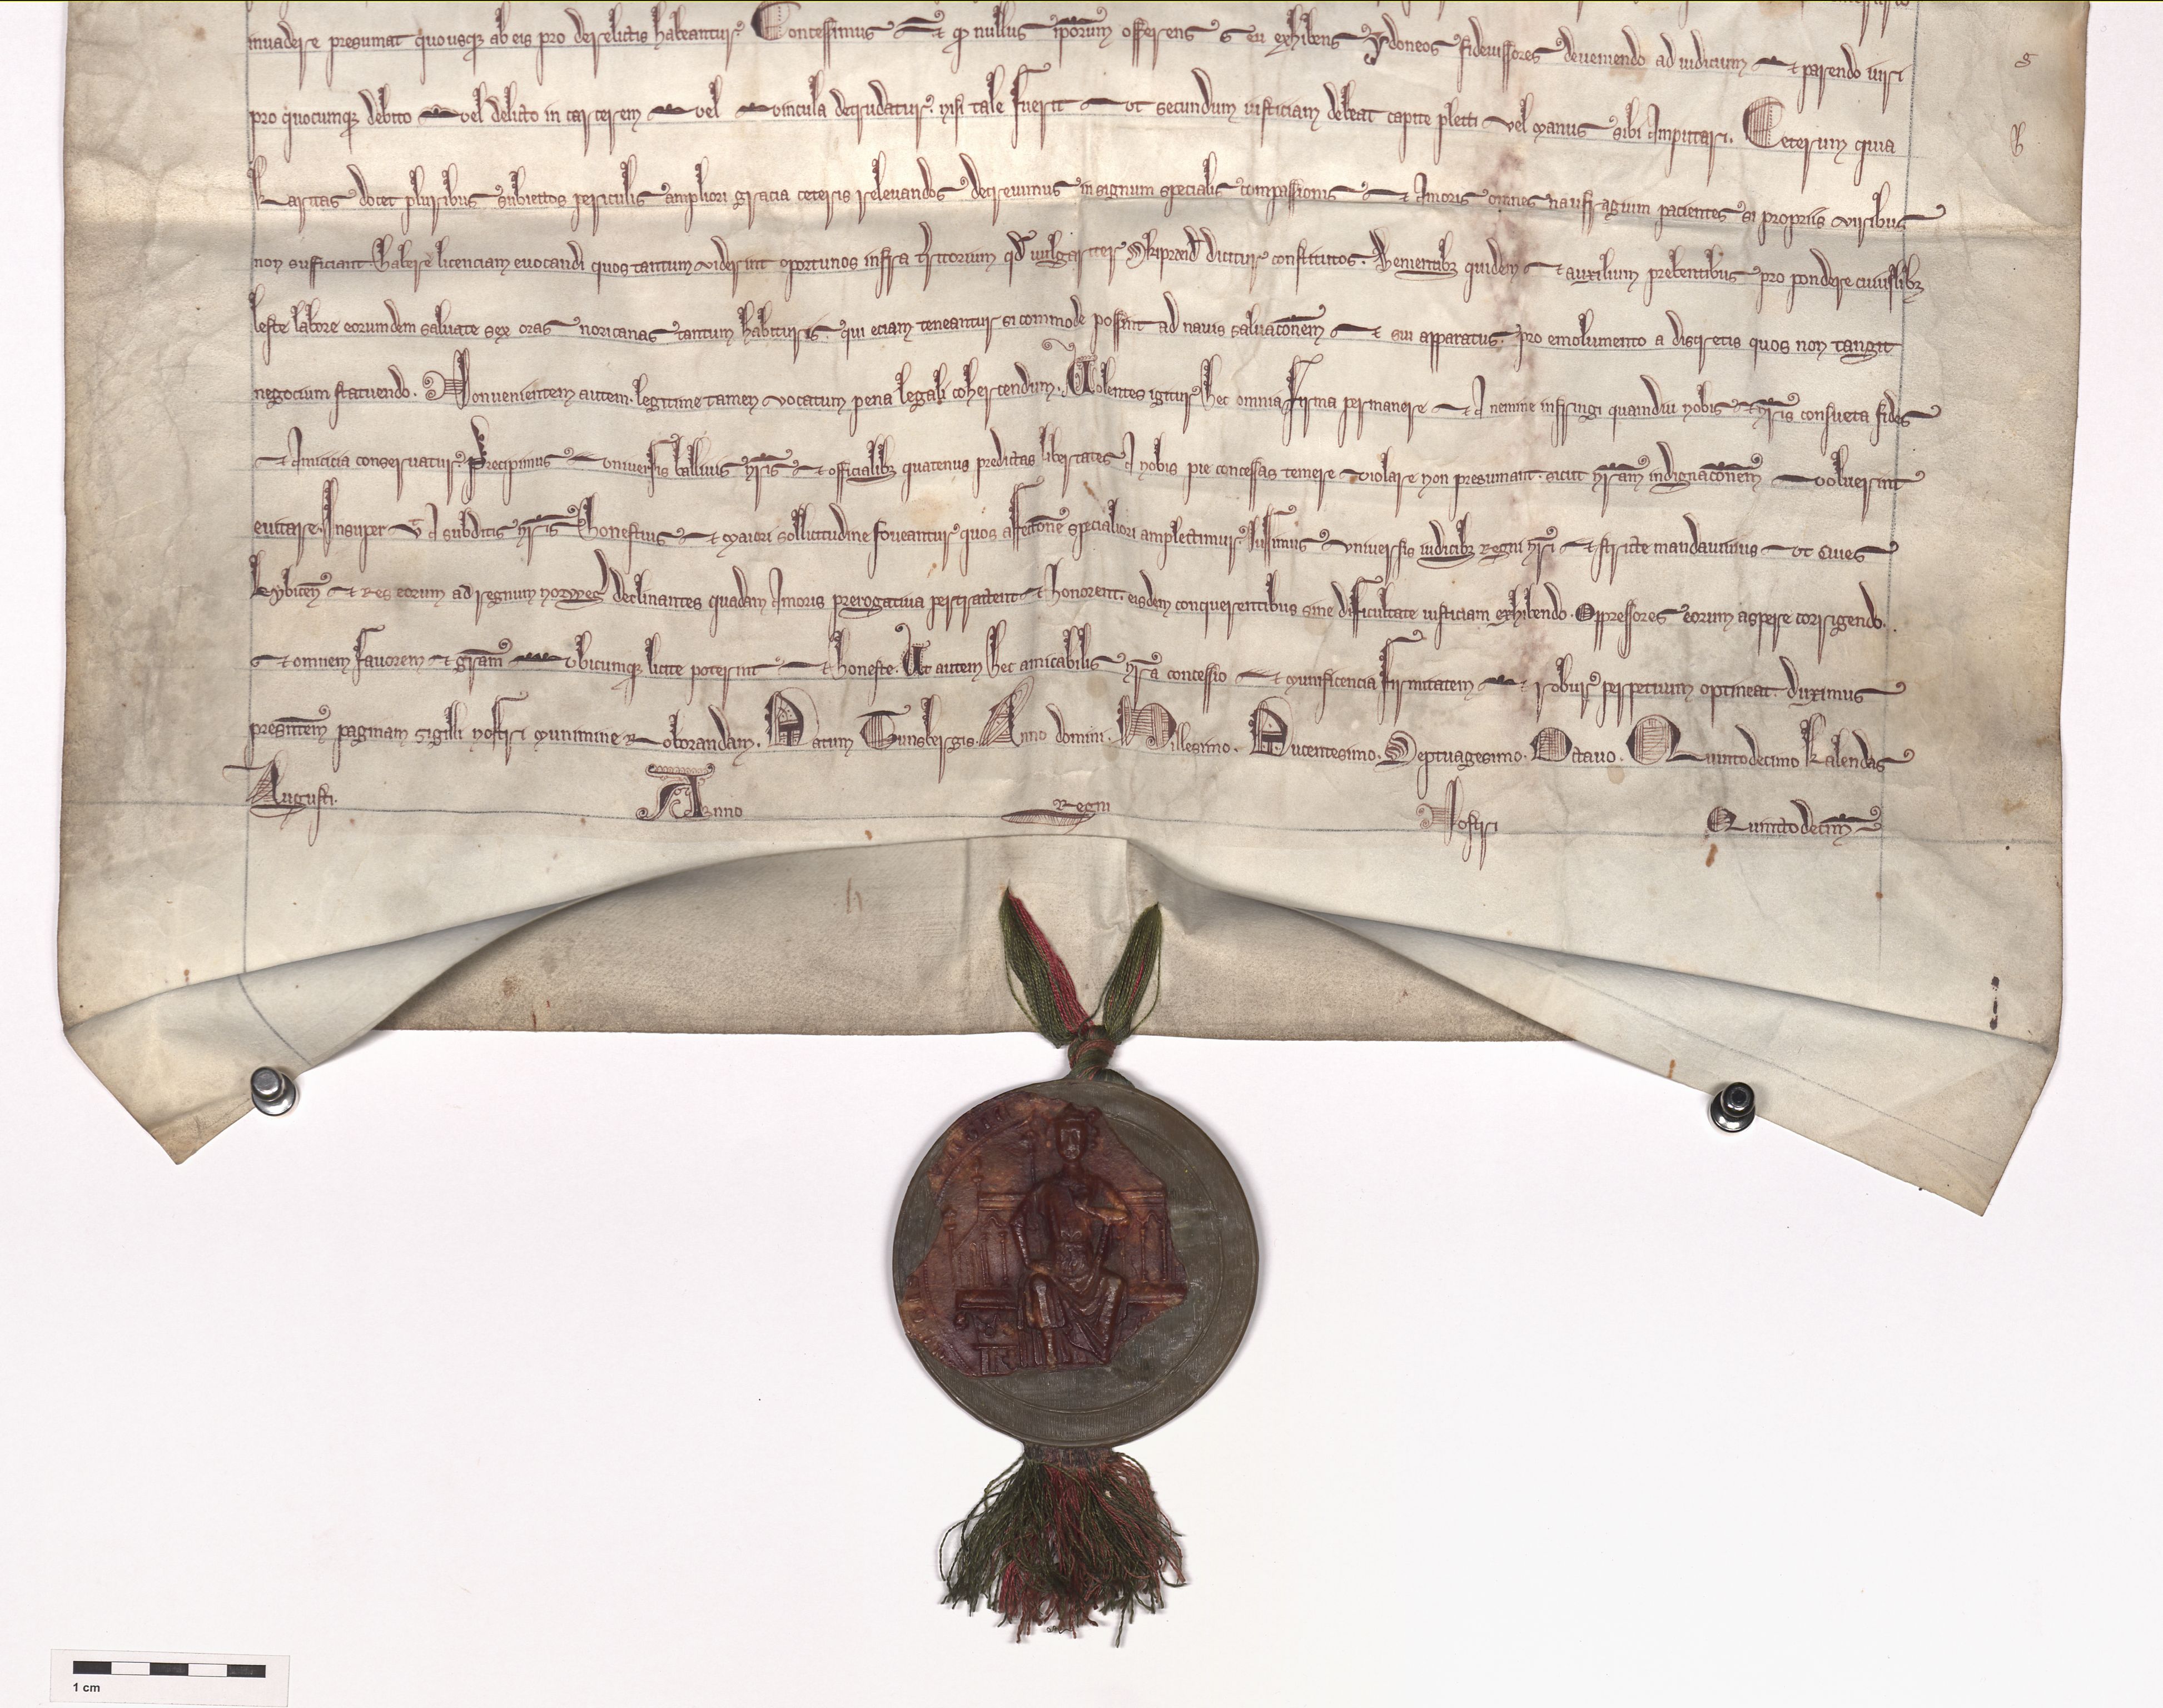 inuadere presumat quousq; ab eis pro derelictis habeantur. Concessimus et qͦ nullus ip̄orum offerens seu exhibens ydoneos fideiussores de ueniendo ad iudicium et parendo iuri
pro quocumq; debito vel delicto in carcerem vel vincula detrudatur. nisi tale fuerit vt secundum iusticiam debeat capite plecti vel manus sibi Amputari. Ceterum quia
karitas docet pluribus subiectos periculis ampliori gracia ceteris releuandos decreuimus in signum specialis compassionis et Amoris omnes naufragium pacientes si propriis viribus
non sufficiant habere licenciam euocandi quos tantum viderint oportunos infra t̄ritorium qd̄ wlgariter dicitur constitutos. Uenientibꝫ quidem et auxilium prebentibus pro pondere cuiuslibꝫ
leste labore eorumdem saluate sex oras noricanas tantum habituris. qui eciam teneantur si commode possint ad nauis saluac̄onem et sui apparatus. pro emolumento a discretis quos non tangit
negocium statuendo. Non uenientem autem. legitime tamen vocatum pena legali cohercendum. Uolentes igitur hec omnia firma permanere et A nemine infringi quamdiu nobis et nr̄is consueta fides
et Amicicia conseruatur. Precipimus vniuersis balliuis nr̄is et officialibꝫ quatenus predictas libertates A nobis pie concessas temere violare non presumant. sicut nr̄am indignac̄onem voluerint
euitare. Insuper vt A subditis nr̄is honestius et maiori sollicitudine foueantur quos affectōne specialiori amplectimur. Iussimus vniuersis iudicibꝫ regni nr̄i et stricte mandauimus vt Ciues
Lybicen̄ et Res eorum ad regnum norweḡ declinantes quadam Amoris prerogatiua pertractent et honorent. eisdem conquerentibus sine difficultate iusticiam exhibendo. Oppressores eorum aspere corrigendo.
et omnem fauorem et gr̄am vbicumq; licite poterint et honeste. Ut autem hec amicabilis nr̄a concessio et munificencia firmitatem et robur perpetuum optineat. duximus
present̄em paginam sigilli nostri munimine Roborandam. Datum Tunsbergis. Anno domini. Millesimo. Ducentesimo. Septuagesimo. Octauo. Quintodecimo kalendas
Augusti. Anno Regni Nostri Quintodecim̄o
1 cm